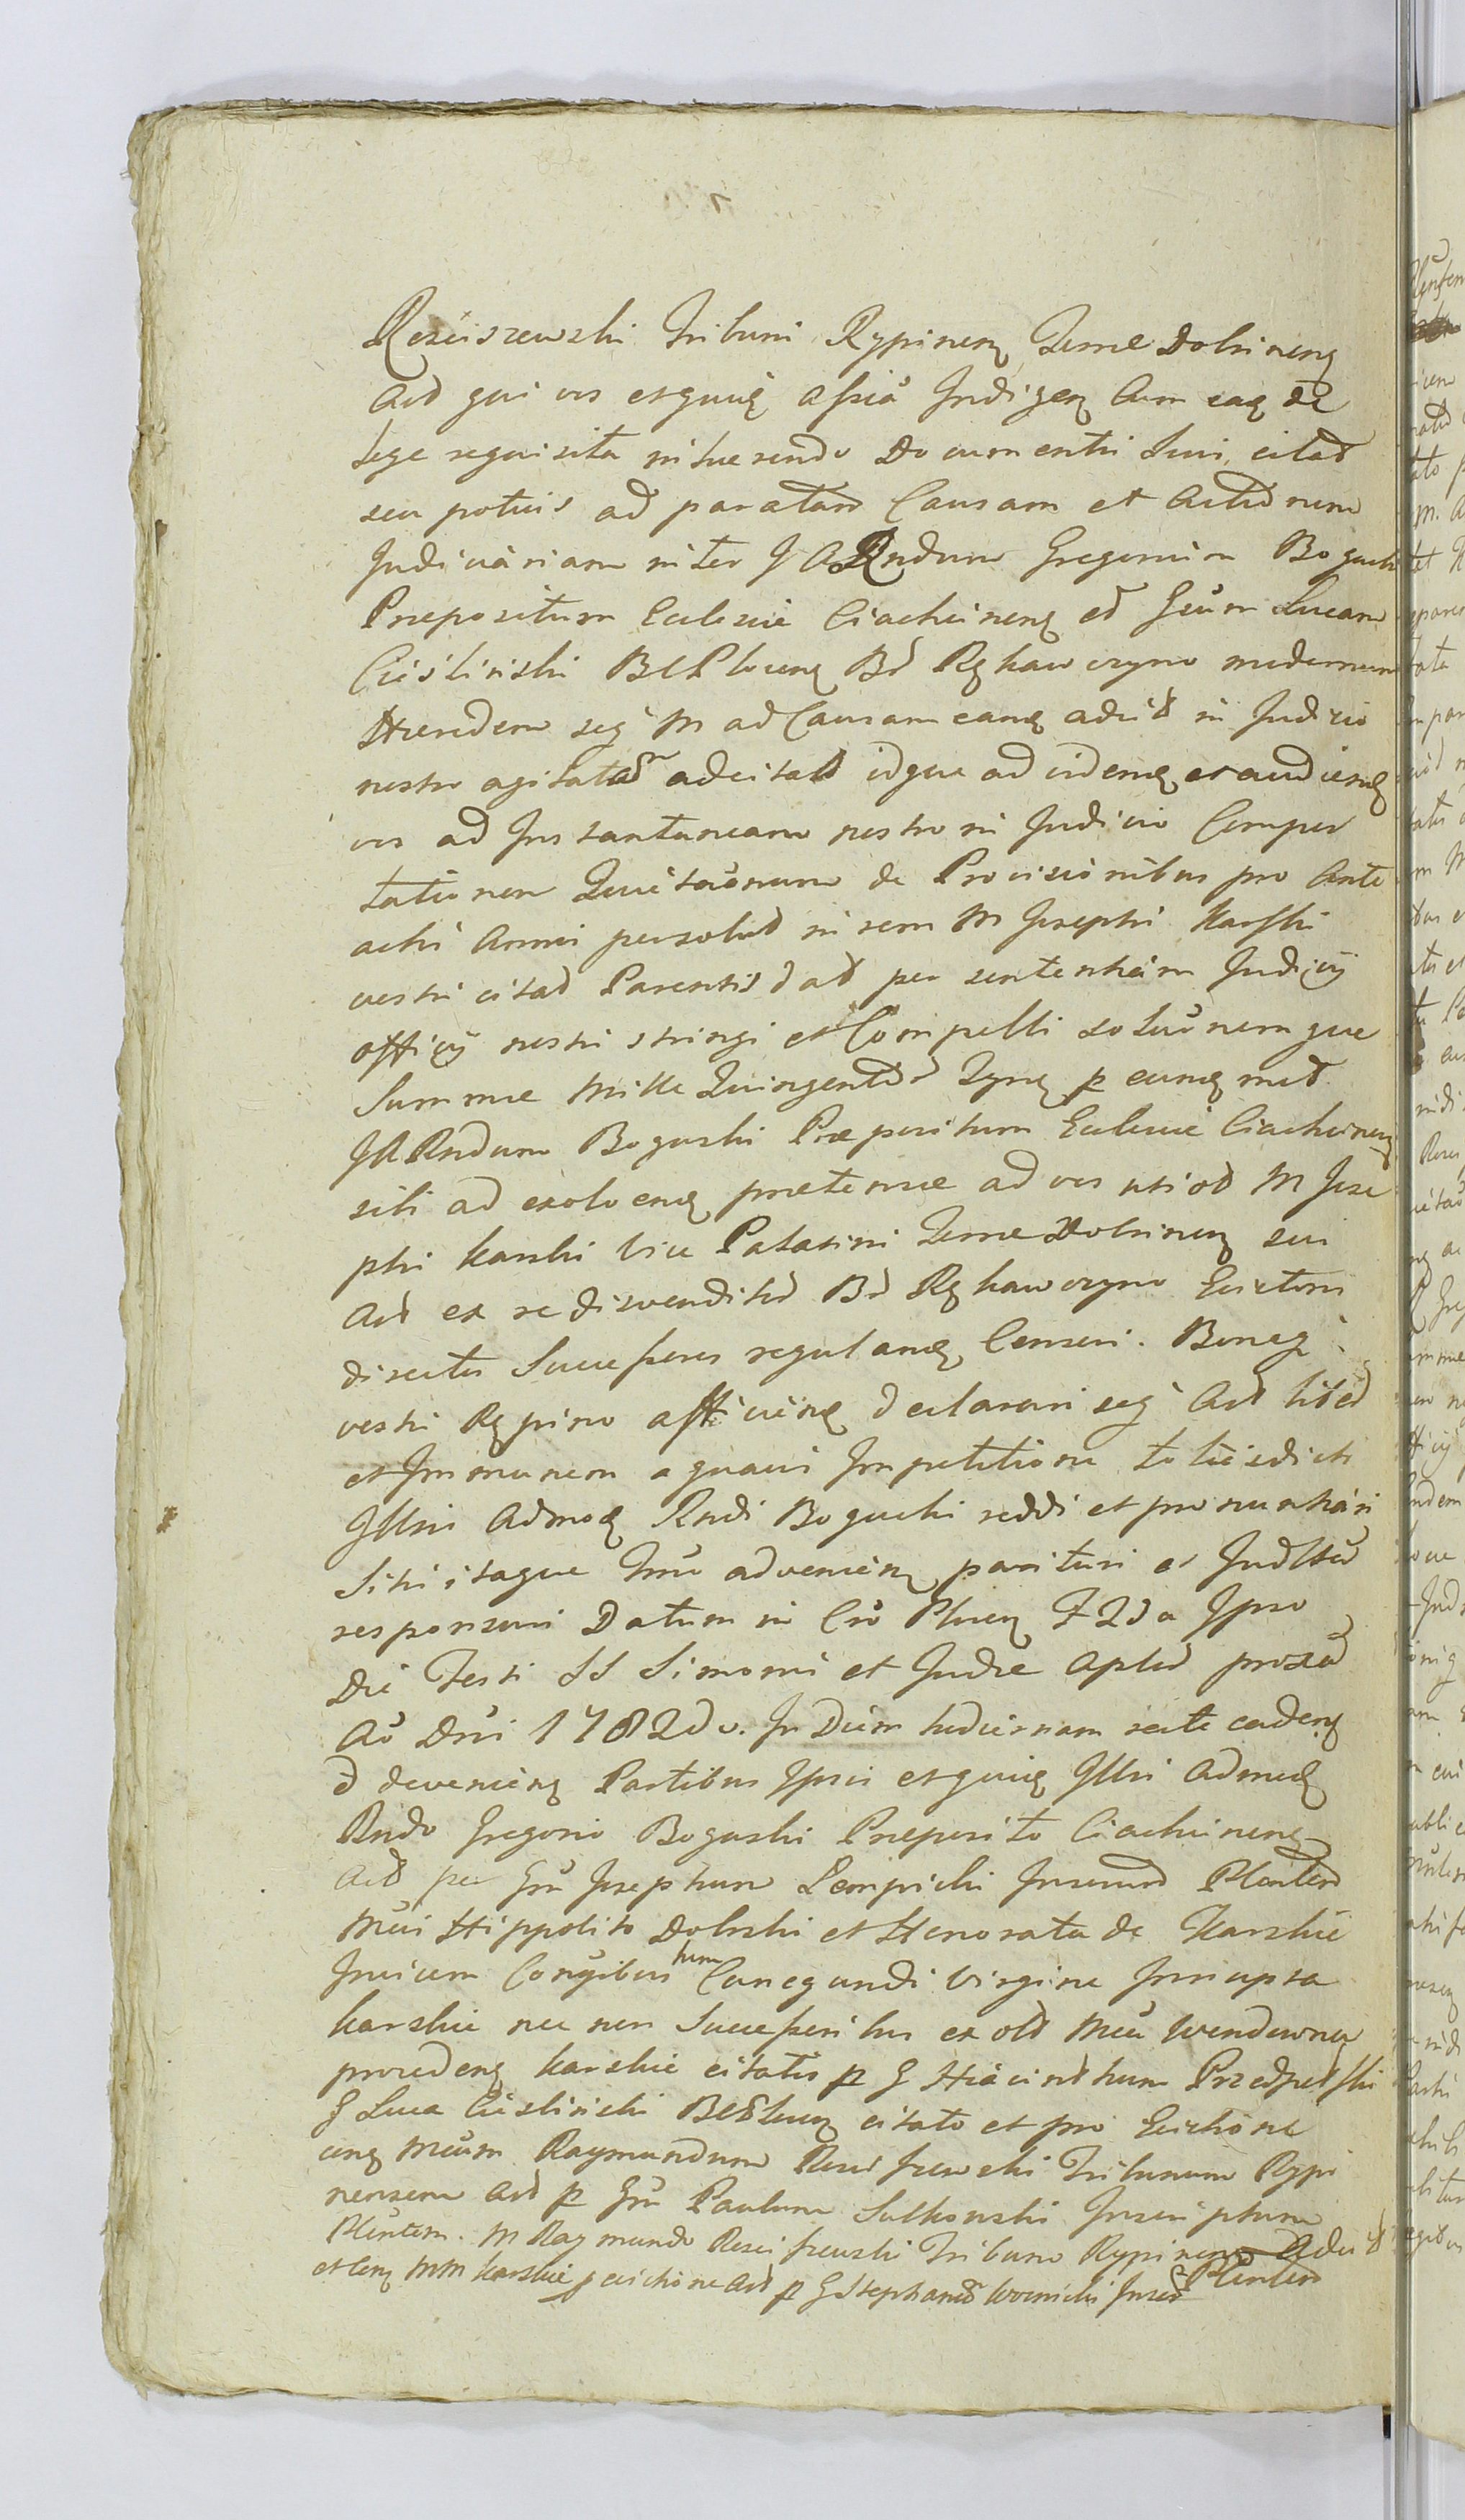 Rościszewski Tribuni Rypinen Terrae Dobrinen
Act qui vos et quemq afficio Indigen Cum eaq de
lege requisita intuerendo Documenti Sui citat
seu potius ad paratam Causam et Actionem
Judiciariam inter J A Rndum Gregorium Bogucki
Praepositum Ecclesiae Ciachcinen et Gsum Lucam
Cieslinski BCPlocen Bd Rękawczyno modernum
Haeredem seq M ad Causam eamq adcit in Judicio
nostro agitatam adcitat idque ad videnq et audienq
vos ad Instantaneam nostro in Judicio Compor
tationem Quietaonum de Provisionibus pro Ante
acti Anni persolut in rem M Josephi Karski
vestri citat Parentis dat per sententiam Judicij
officij nostri stringi et Compelli soluonemque
Summae Mille Quingentor per eunq mod
JA Rndum Boguski Praepositum Ecclesiae Ciachcinen
sibi ad exolvenq praetensae ad vos uti od M Jose
phi Karski Vice Palatini Terrae Dobrinen sui
Act ex re disvendit Bd Rękawczyno Evictoris
directos Successores regulanq Censeri. Bonaq
vestri Rypino afficienq declarari seq Act liber
et Immunem a quavis Impetitione toties dicti
Illris Admodq Rndi Bogucki reddi et pronunciari
Sitis itaque Tmo advenien parituri et Judltr
responsuri Datum in Cro Plocen F 2da Ipso
Die Festi SS Simonis et Judae Aplor proxa
Ao Dni 1782do. In Diem hodiernam recte caden
et devenien Partibus Ipsis et quiq Illri Admodq
Rndo Gregorio Boguski Praeposito Ciachcinen
Act per Gsu Josephum Lempicki Plenten
Mcis Hippolito Dobrski et Honorata de Karskie
Invicem Conjugibus tum Cunegundi Virgine Innupta
Karskie nec non Successoribus ex olt Mca
proceden Karskie citatis p G Hiacinthum
G Luca Cieslinski BCPlocen citato et pro Evictione
cunq Mcum Raymundum Rościszewski Tribunum Rypi
nensem Act p Gsu Paulum Sulkowski Inscriptum
Plentem. M Raymundo Rościszewski Tribuno Rypinen Adcit
et Cenq MM Karskie p evictione Act p G Stephanu Woznicki Inscr Plenten